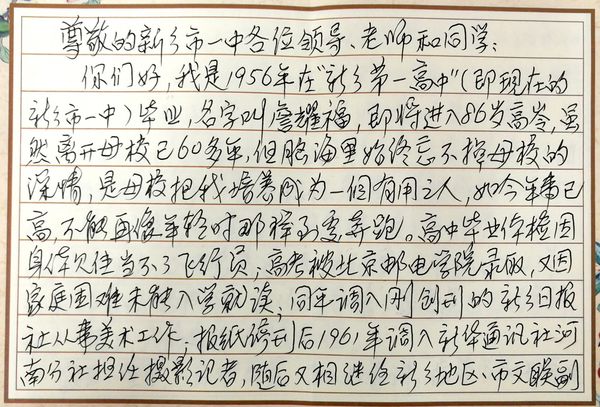 尊敬的新乡市一中各位领导、老师和同学:
你们好,我是1956年在"新乡第一高中"(即现在的
新乡市一中)毕业,名字叫詹耀福,即将进入86岁高岺,虽
然离开母校已60多年,但脑海里始终忘不掉母校的
深情,是母校把我培养成为一个有用之人,如今年事已
高,不能再像年轻时那样到处奔跑。高中毕业体检因
身体欠佳当不了飞行员;高考被北京邮电学院录取,又因
家庭困难未能入学就读,同年调入刚创刊的新乡日报
社从事美术工作;报纸停刊后1961年调入新华通讯社河
南分社担任摄影记者,随后又相继任新乡地区、市文联副